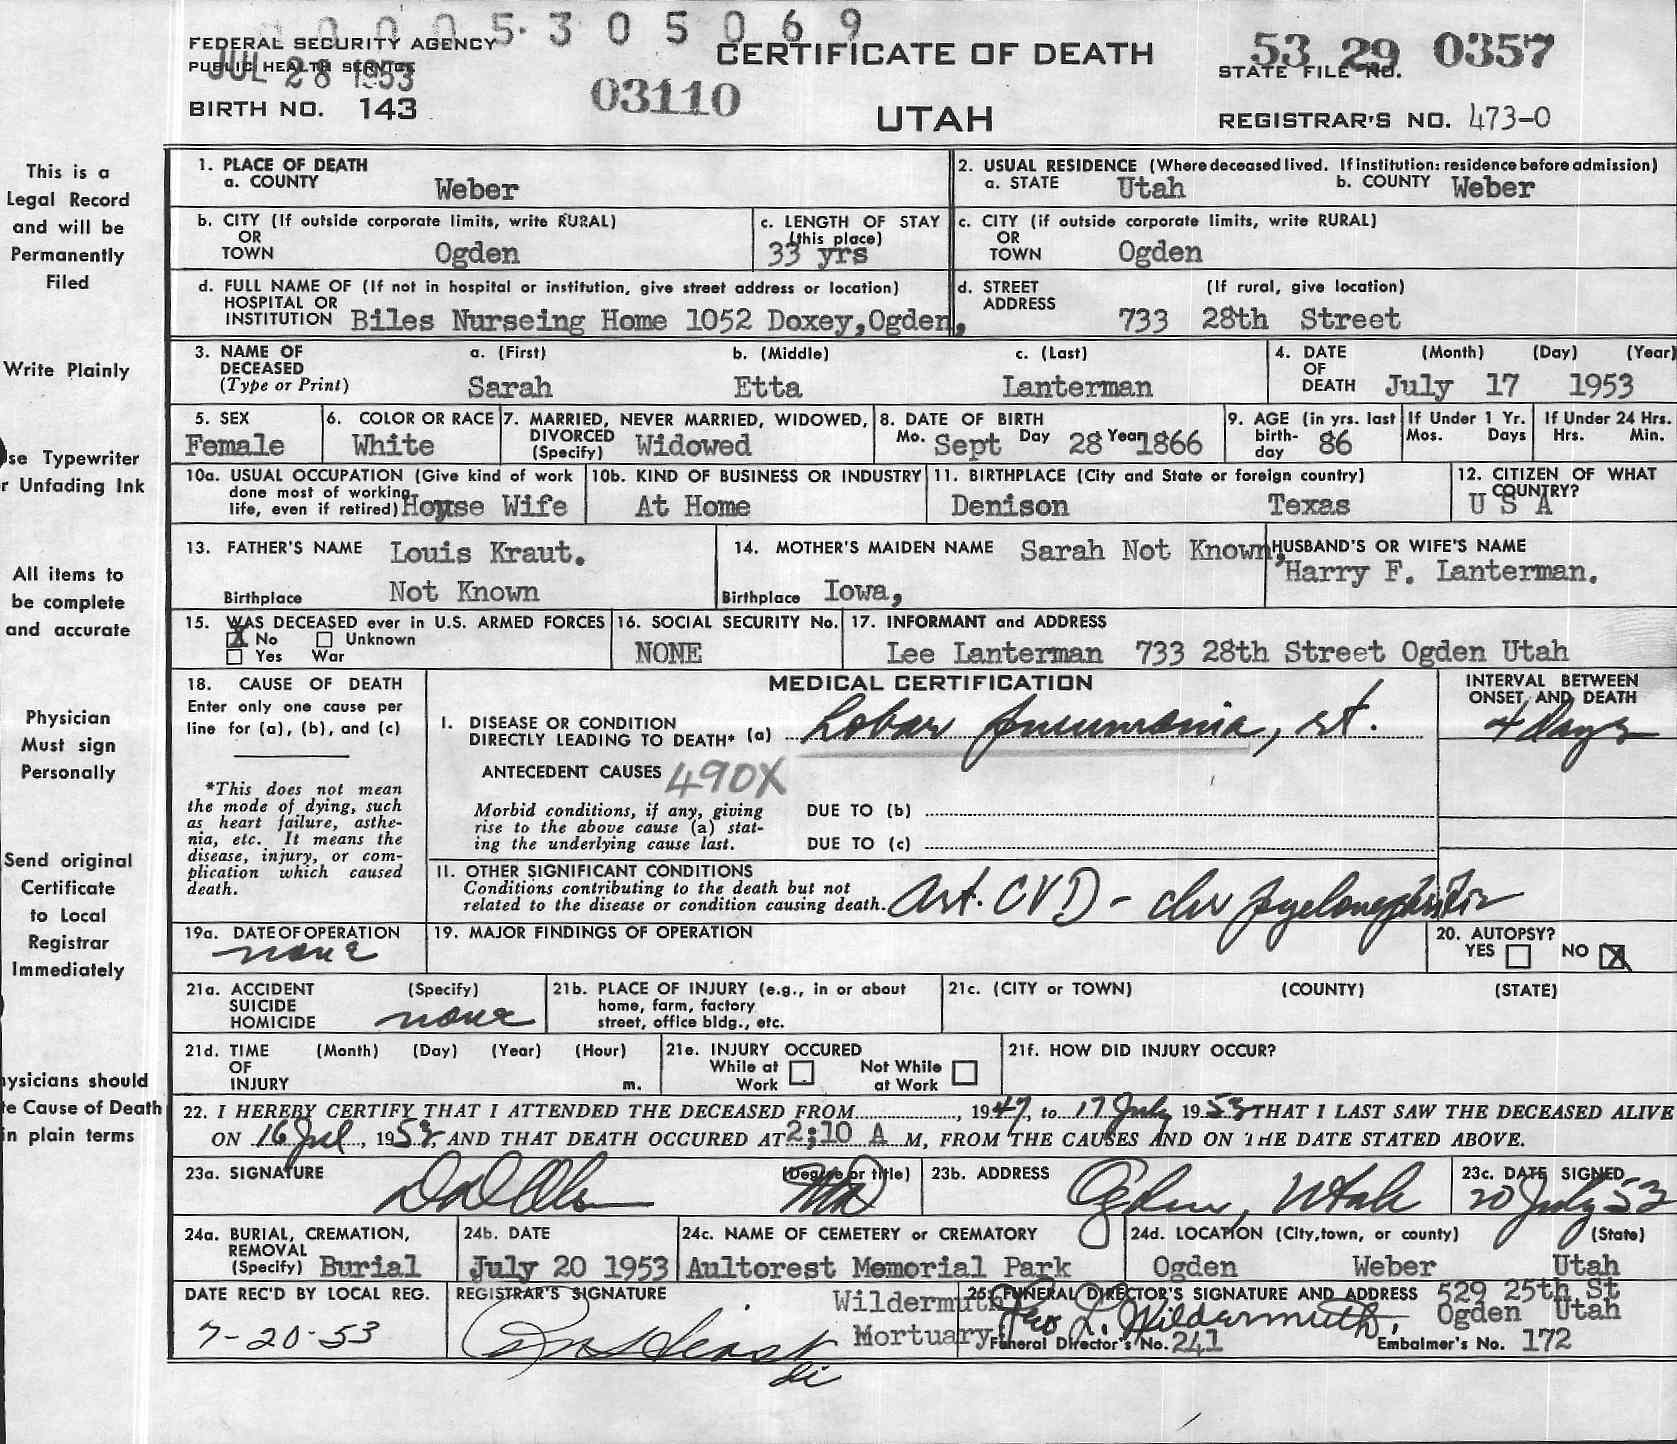 0005305069
FEDERAL SECURITY AGENCY
PUBLIC HEALTH SERVICE
JUL 28 1953
BIRTH NO. 143
03110
CERTIFICATE OF DEATH
UTAH
53 29 0357
STATE FILE NO.
REGISTRAR'S NO. 473-0
This is a
Legal Record
and will be
Permanently
Filed
Write Plainly
se Typewriter
r Unfading Ink
All items to
be complete
and accurate
Physician
Must sign
Personally
Send original
Certificate
to Local
Registrar
Immediately
ysicians should
te Cause of Death
in plain terms
1. PLACE OF DEATH
a. COUNTY Weber
2. USUAL RESIDENCE (Where deceased lived. If institution: residence before admission)
a. STATE Utah b. COUNTY Weber
b. CITY (If outside corporate limits, write RURAL)
OR
TOWN Ogden
c. LENGTH OF STAY
(this place)
33 yrs
c. CITY (if outside corporate limits, write RURAL)
OR
TOWN Ogden
d. FULL NAME OF (If not in hospital or institution, give street address or location)
HOSPITAL OR
INSTITUTION Biles Nurseing Home 1052 Doxey,Ogden,
d. STREET (If rural, give location)
ADDRESS 733 28th Street
3. NAME OF
DECEASED
(Type or Print)
a. (First) b. (Middle) c. (Last)
Sarah Etta Lanterman
4. DATE (Month) (Day) (Year)
OF
DEATH July 17 1953
5. SEX
Female
6. COLOR OR RACE
White
7. MARRIED, NEVER MARRIED, WIDOWED,
DIVORCED
(Specify) Widowed
8. DATE OF BIRTH
Mo. Sept Day 28 Year 1866
9. AGE (in yrs. last
birth-
day 86
If Under 1 Yr.
Mos. Days
If Under 24 Hrs.
Hrs. Min.
10a. USUAL OCCUPATION (Give kind of work
done most of working
life, even if retired) House Wife
10b. KIND OF BUSINESS OR INDUSTRY
At Home
11. BIRTHPLACE (City and State or foreign country)
Denison Texas
12. CITIZEN OF WHAT
COUNTRY?
U S A
13. FATHER'S NAME Louis Kraut.
Birthplace Not Known
14. MOTHER'S MAIDEN NAME Sarah Not Known,
Birthplace Iowa,
HUSBAND'S OR WIFE'S NAME
Harry F. Lanterman.
15. WAS DECEASED ever in U.S. ARMED FORCES
X No Unknown
Yes War
16. SOCIAL SECURITY No.
NONE
17. INFORMANT and ADDRESS
Lee Lanterman 733 28th Street Ogden Utah
18. CAUSE OF DEATH
Enter only one cause per
line for (a), (b), and (c)
*This does not mean
the mode of dying, such
as heart failure, asthe-
nia, etc. It means the
disease, injury, or com-
plication which caused
death.
MEDICAL CERTIFICATION
INTERVAL BETWEEN
ONSET AND DEATH
I. DISEASE OR CONDITION
DIRECTLY LEADING TO DEATH* (a) Lobar pneumonia, rt.
4 days
ANTECEDENT CAUSES 490X
Morbid conditions, if any, giving
rise to the above cause (a) stat-
ing the underlying cause last.
DUE TO (b)
DUE TO (c)
II. OTHER SIGNIFICANT CONDITIONS
Conditions contributing to the death but not
related to the disease or condition causing death.
Art. CVD - chr pyelonephritis
19a. DATE OF OPERATION
none
19. MAJOR FINDINGS OF OPERATION
20. AUTOPSY?
YES NO X
21a. ACCIDENT (Specify)
SUICIDE
HOMICIDE none
21b. PLACE OF INJURY (e.g., in or about
home, farm, factory
street, office bldg., etc.
21c. (CITY or TOWN) (COUNTY) (STATE)
21d. TIME (Month) (Day) (Year) (Hour)
OF
INJURY m.
21e. INJURY OCCURED
While at Not While
Work at Work
21f. HOW DID INJURY OCCUR?
22. I HEREBY CERTIFY THAT I ATTENDED THE DECEASED FROM , 1947, to 17 July 1953 THAT I LAST SAW THE DECEASED ALIVE
ON 16 Jul, 1953, AND THAT DEATH OCCURED AT 2:10 A M, FROM THE CAUSES AND ON THE DATE STATED ABOVE.
23a. SIGNATURE (Degree or title)
MD
23b. ADDRESS Ogden, Utah
23c. DATE SIGNED
20 July 53
24a. BURIAL, CREMATION,
REMOVAL
(Specify) Burial
24b. DATE
July 20 1953
24c. NAME OF CEMETERY or CREMATORY
Aultorest Memorial Park
24d. LOCATION (City, town, or county) (State)
Ogden Weber Utah
DATE REC'D BY LOCAL REG.
7-20-53
REGISTRAR'S SIGNATURE
Wildermuth
Mortuary
25. FUNERAL DIRECTOR'S SIGNATURE AND ADDRESS
Geo L. Wildermuth,
529 25th St
Ogden Utah
Funeral Director's No. 241 Embalmer's No. 172